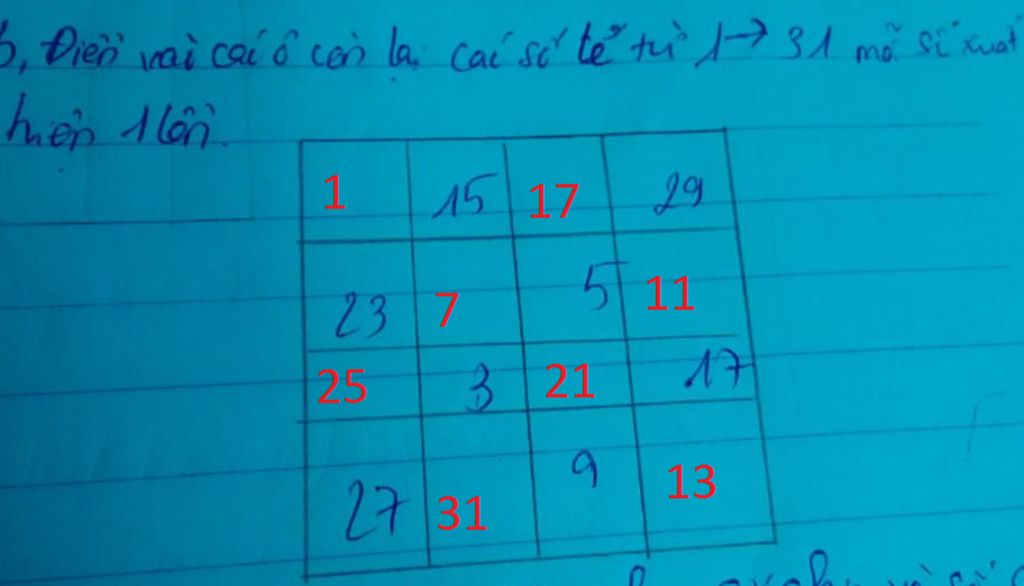 b, Điền vài cái ô còn lại các số lẻ từ 1→31 mỗ số xuất
hiện 1 lần.
1 15 17 29
23 7 5 11
25 3 21 17
27 31 9 13